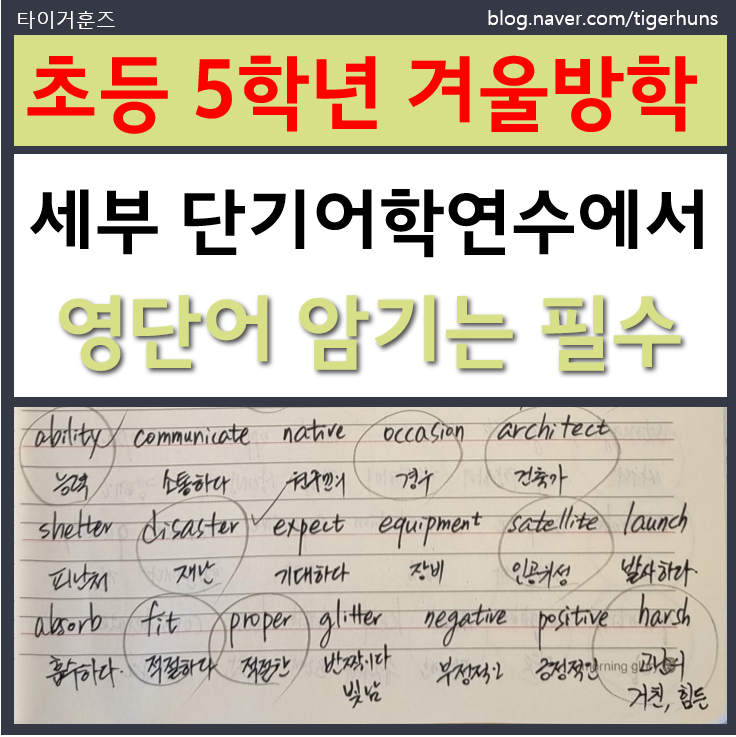 타이거훈즈 blog.naver.com/tigerhuns
초등 5학년 겨울방학
세부 단기어학연수에서
영단어 암기는 필수
ability communicate native occasion architect
능력 소통하다 원주민의 경우 건축가
shelter disaster expect equipment satellite launch
피난처 재난 기대하다 장비 인공위성 발사하다.
absorb fit proper glitter negative positive harsh
흡수하다. 적절하다 적절한 반짝이다 부정적인 긍정적인
빛남 거친, 힘든